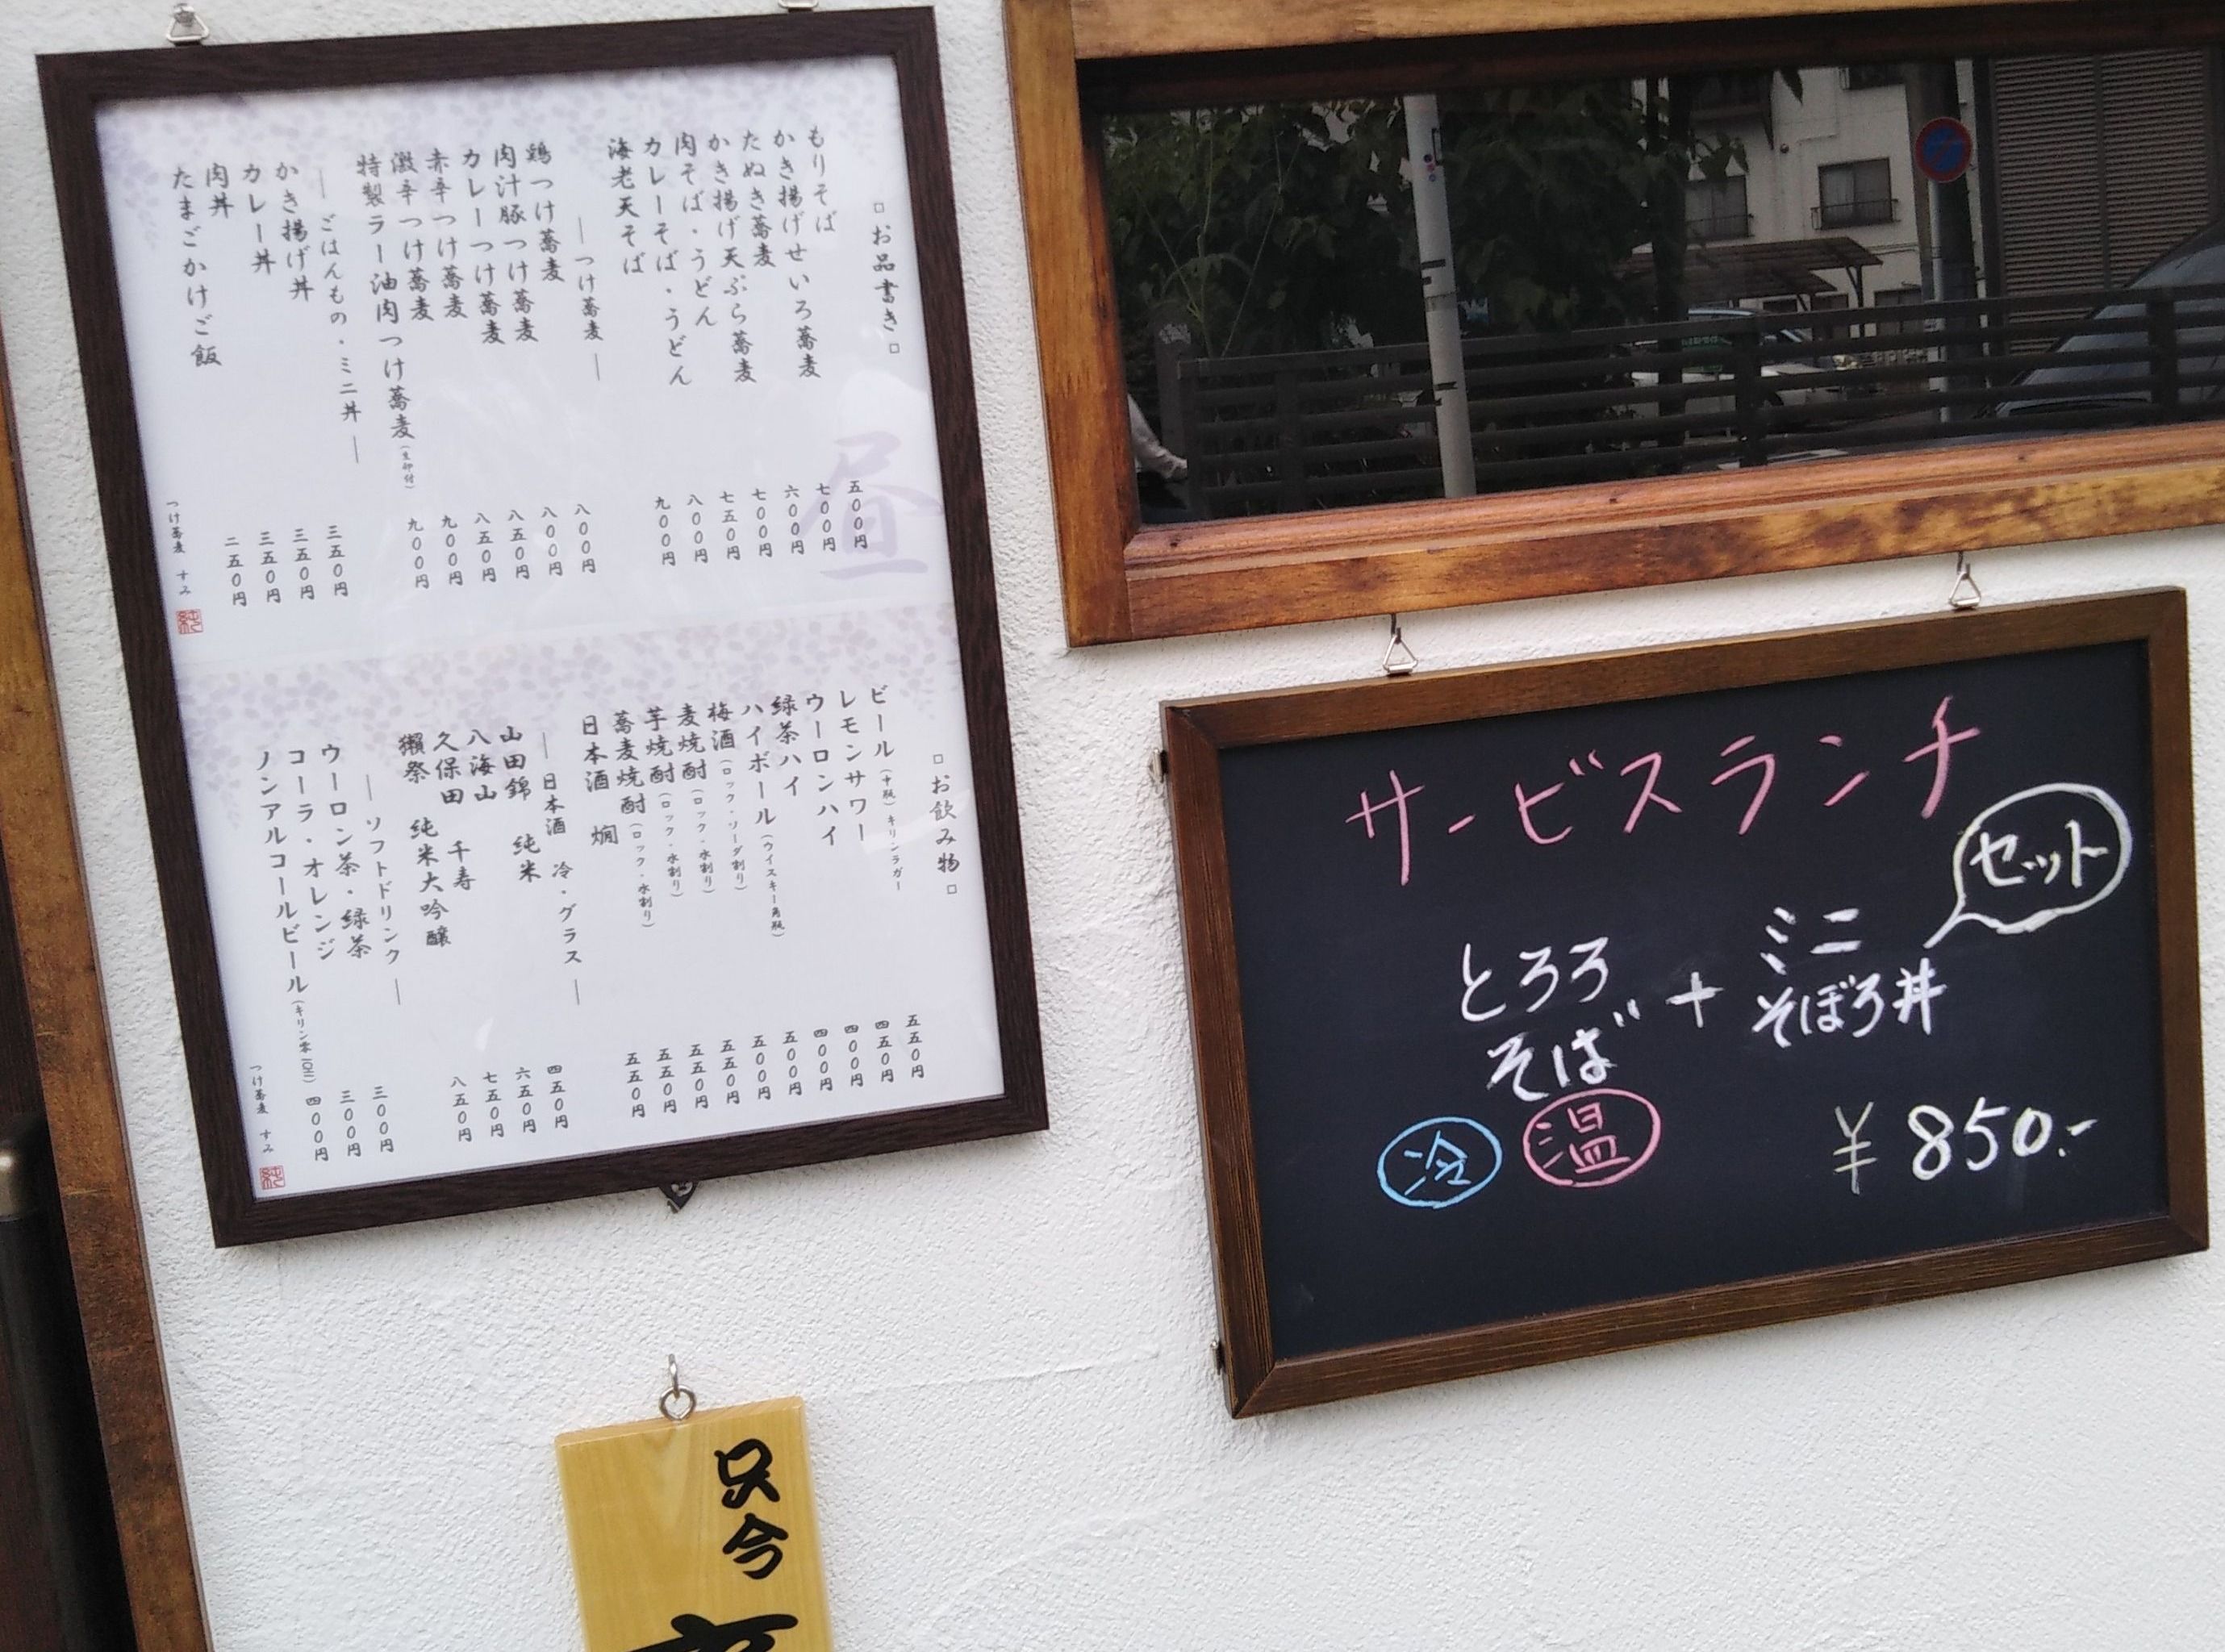 □お品書き□
昼
もりそば 五〇〇円
かき揚げせいろ蕎麦 七〇〇円
たぬき蕎麦 六〇〇円
かき揚げ天ぷら蕎麦 七〇〇円
肉そば・うどん 七五〇円
カレーそば・うどん 八〇〇円
海老天そば 九〇〇円
―つけ蕎麦―
鶏つけ蕎麦 八〇〇円
肉汁豚つけ蕎麦 八〇〇円
カレーつけ蕎麦 八五〇円
赤辛つけ蕎麦 八五〇円
激辛つけ蕎麦 九〇〇円
特製ラー油肉つけ蕎麦(生卵付) 九〇〇円
―ごはんもの・ミニ丼―
かき揚げ丼 三五〇円
カレー丼 三五〇円
肉丼 三五〇円
たまごかけご飯 二五〇円
つけ蕎麦 すみ
純
□お飲み物□
ビール(中瓶)キリンラガー 五五〇円
レモンサワー 四五〇円
ウーロンハイ 四〇〇円
緑茶ハイ 四〇〇円
ハイボール(ウイスキー角瓶) 五〇〇円
梅酒(ロック・ソーダ割り) 五〇〇円
麦焼酎(ロック・水割り) 五五〇円
芋焼酎(ロック・水割り) 五五〇円
蕎麦焼酎(ロック・水割り) 五五〇円
日本酒 燗 五五〇円
―日本酒 冷・グラス―
山田錦 純米 四五〇円
八海山 六五〇円
久保田 千寿 七五〇円
獺祭 純米大吟醸 八五〇円
―ソフトドリンク―
ウーロン茶・緑茶 三〇〇円
コーラ・オレンジ 三〇〇円
ノンアルコールビール(キリン零ICHI) 四〇〇円
つけ蕎麦 すみ
純
サービスランチ
セット
とろろ
そば
+
ミニ
そぼろ丼
冷 温
¥850.-
只今